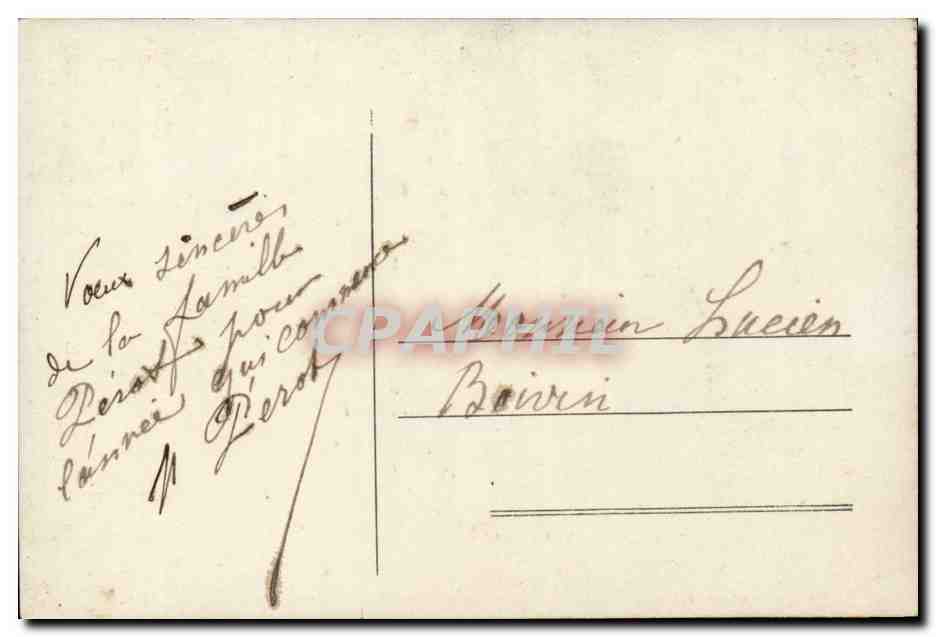 Voeux sincères
de la famille
Pérot pour
l'année qui commence
Pérot
Monsieur Lucien
Boivin
CPAPHIL